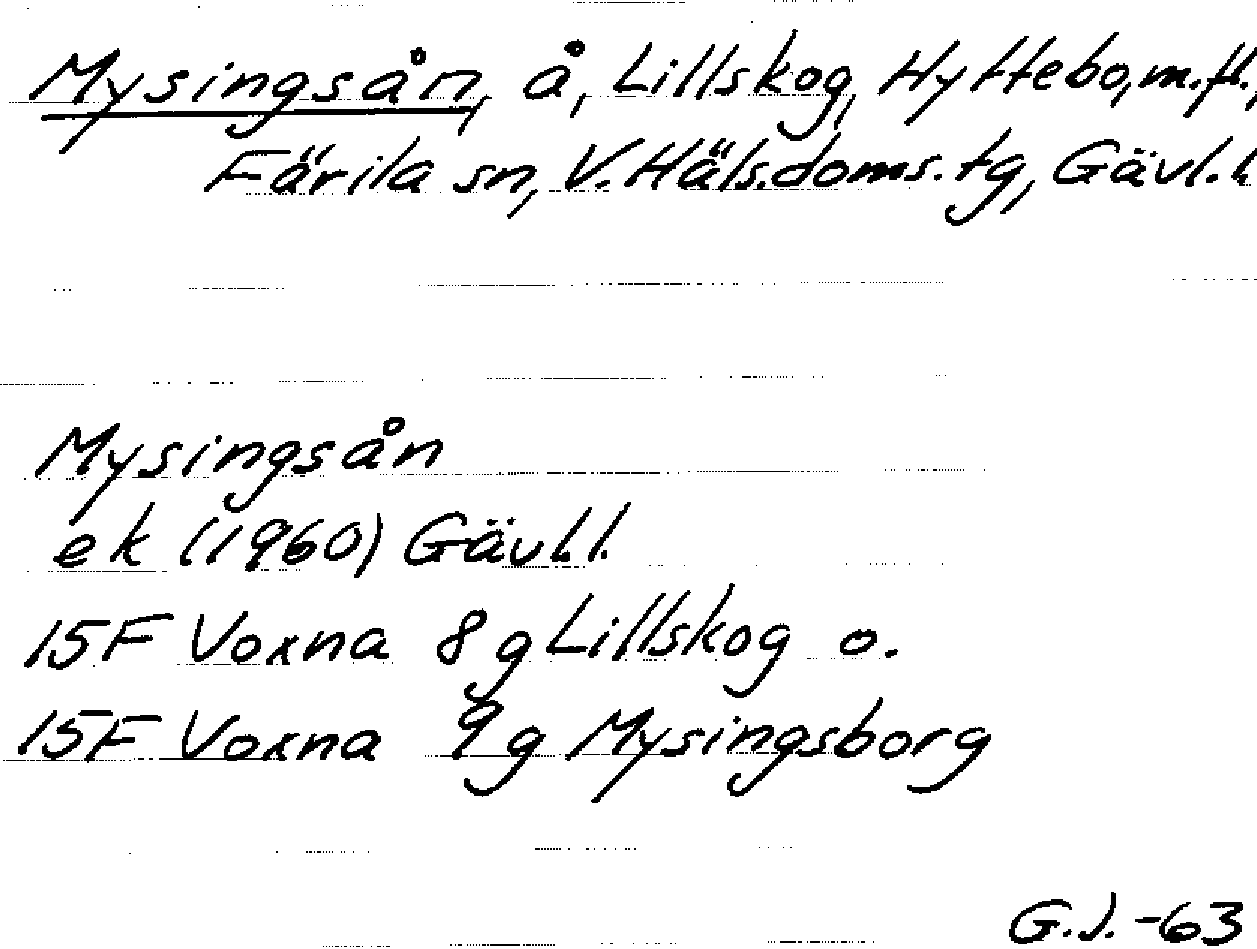 Mysingsån, å, Lillskog, Hyttebo, m.fl.,
Färila sn, V. Häls. doms. tg, Gävl. l
Mysingsån
ek (1960) Gävl. l.
15F Voxna 8 g Lillskog o.
15F Voxna 9 g Mysingsborg
G.J. -63